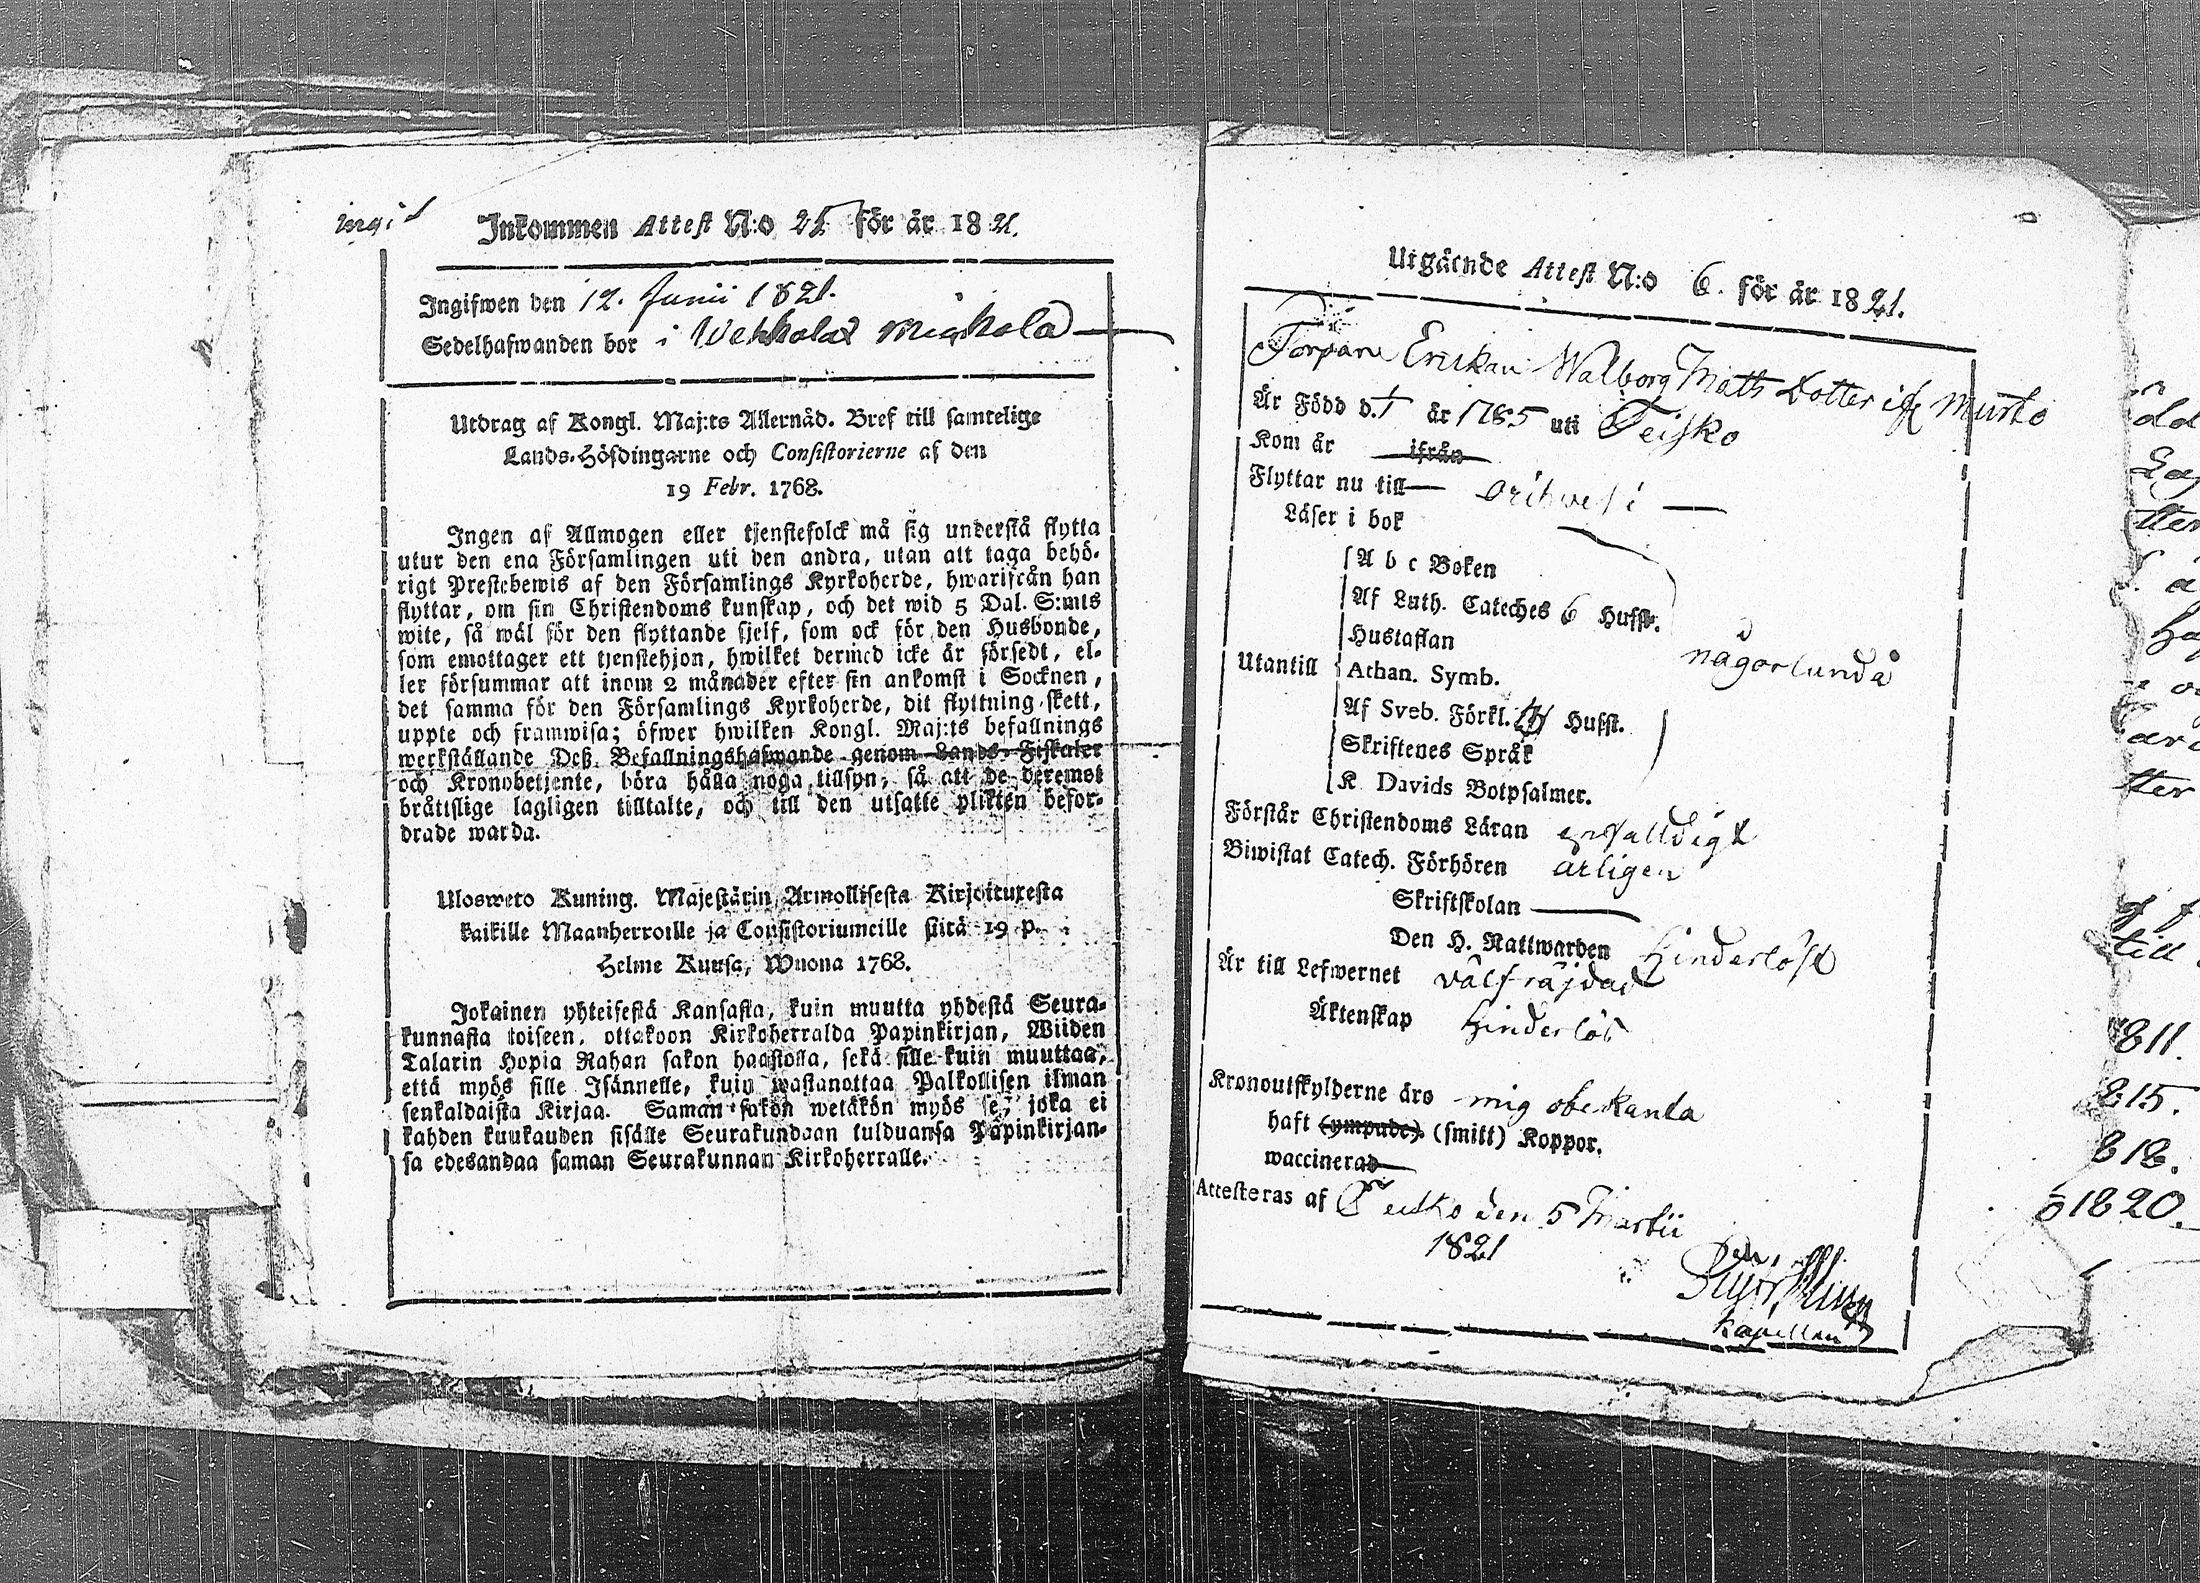 Inkommen Attest N:o 25 för år 1821.
Ingifwen den 12. Junii 1821.
Sedelhafwanden bor i Wehkalax
Utdrag af Kongl. Maj:ts Allernåd. Bref till samtelige
Lands-Höfdingarne och Consistorierne af den
19 Febr. 1768.
Ingen af Allmogen eller tjenstefolck må sig understå flytta
utur den ena Församlingen uti den andra, utan att taga behö-
rigt Prestebewis af den Församlings Kyrkoherde, hwarifrån han
flyttar, om sin Christendoms kunskap, och det wid 5 Dal. S:mts
wite, så wäl för den flyttande sjelf, som ock för den Husbonde,
som emottager ett tjenstehjon, hwilket dermed icke är försedt, el-
ler försummar att inom 2 månader efter sin ankomst i Socknen,
det samma för den Församlings Kyrkoherde, dit flyttning skett,
uppte och framwisa; öfwer hwilken Kongl. Maj:ts befallnings
werkställande Deß Befallningshafwande genom Lands-Fiskaler
och Kronobetjente, böra hålla noga tillsyn, så att de deremot
bråttslige lagligen tilltalte, och till den utsatte plikten befor-
drade warda.
Ulosweto Kuning. Majestärin Armollisesta Kirjoituxesta
kaikille Maanherroille ja Consistoriumeille siitä 19 p.
Helme Kuusa, Wuona 1768.
Jokainen yhteisestä Kansasta, kuin muutta yhdestä Seura-
kunnasta toiseen, ottakoon Kirkoherralda Papinkirjan, Wiiden
Talarin Hopia Rahan sakon haastolla, sekä sille kuin muuttaa,
että myös sille Isännelle, kuin wastanottaa Palkollisen ilman
senkaldaista Kirjaa. Saman sakon wetäkön myös se, joka ei
kahden kuukauden sisälle Seurakundaan tulduansa Papinkirjan-
sa edesandaa saman Seurakunnan Kirkoherralle.
Utgående Attest N:o 6. för år 1821.
Torpare Enckan Walborg Matts Dotter ifr Mursto
Är Född d. 1/1 år 1785 uti Teisko
Kom år ifrån
Flyttar nu till Orihwesi
Läser i bok
A b c Boken
Af Luth. Cateches 6 Hufst.
Hustaflan
någorlunda
Utantill
Athan. Symb.
Af Sveb. Förkl. Hufst.
Skriftenes Språk
K. Davids Botpsalmer.
Förstår Christendoms Läran enfalldigt
Biwistat Catech. Förhören årligen
Skriftskolan
Den H. Nattwarden Hinderlöst
Är till Lefwernet välfräjdad
Äktenskap Hinderlös
Kronoutskylderne äro mig obekanta
haft (ympade) (smitt) Koppor.
waccinerad
Attesteras af Teisko den 5 Martii
1821
Kapellan
811.
815.
818.
1820.